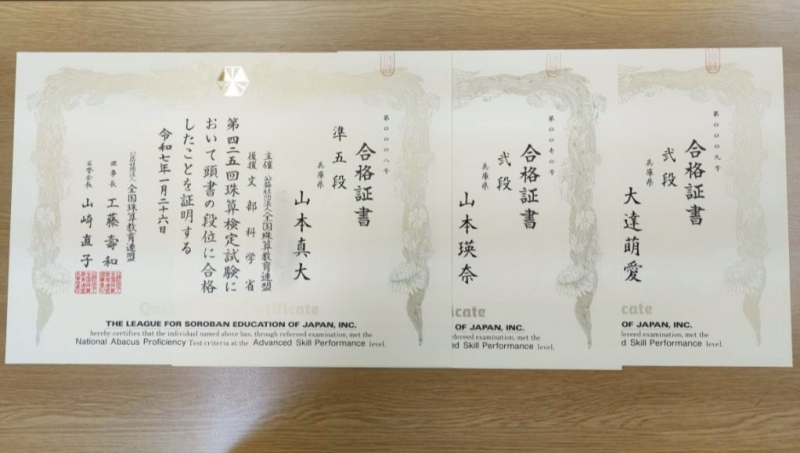 第〇〇〇八号
合格証書
準五段
兵庫県
山本真大
主催 公益社団法人 全国珠算教育連盟
後援 文部科学省
第四二五回珠算検定試験に
おいて頭書の段位に合格
したことを証明する
令和七年一月二十六日
公益社団法人 全国珠算教育連盟
理事長 工藤壽和
名誉会長 山崎直子
Certificate
THE LEAGUE FOR SOROBAN EDUCATION OF JAPAN, INC.
hereby certifies that the individual named above has, through refereed examination, met the
National Abacus Proficiency Test criteria at the Advanced Skill Performance level.
合格証書
弐段
兵庫県
山本瑛奈
icate
OF JAPAN, INC.
refereed examination, met the
ed Skill Performance level.
第〇〇〇九号
合格証書
弐段
兵庫県
大達萌愛
cate
OF JAPAN, INC.
refereed examination, met the
d Skill Performance level.